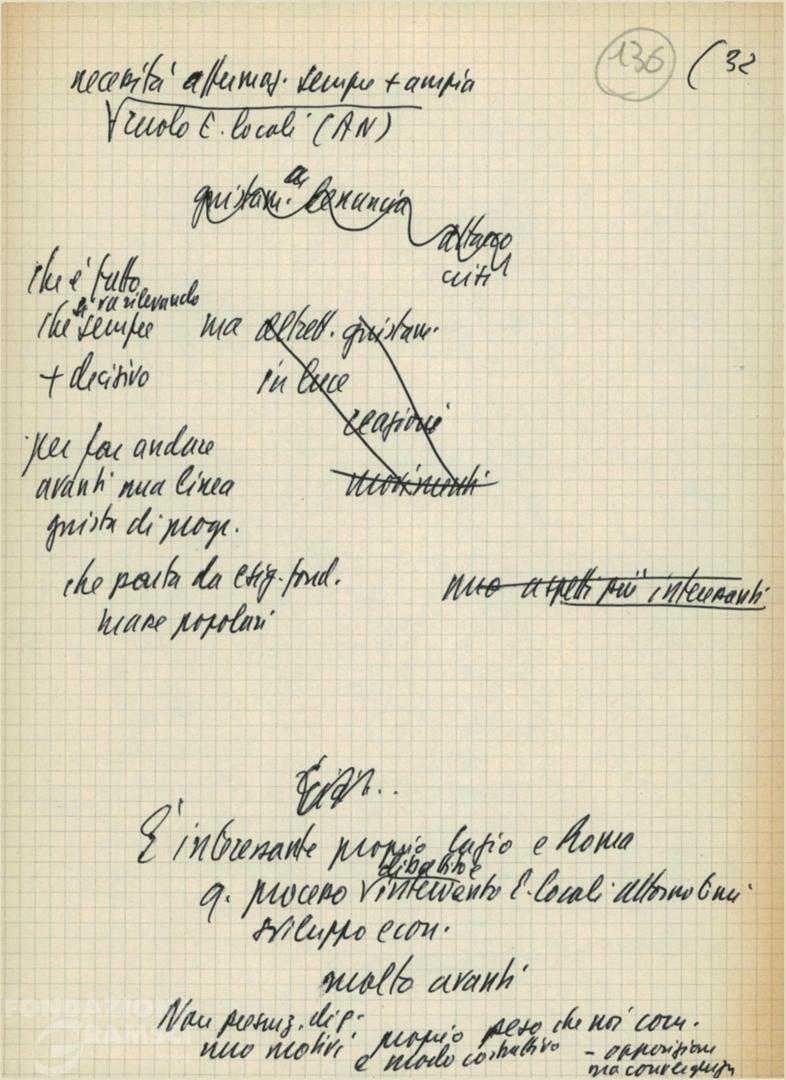 136 (32
necessità affermaz. sempre + ampia
ruolo E. locali (AN)
giustam. si denuncia
attacco
crisi
che è tutto
si va rilevando
che sempre ma altrett. giustam.
+ decisivo in luce
reazioni
per far andare
avanti una linea movimenti
giusta di progr.
che parta da esig. fond.
masse popolari
uno aspetti più interessanti
È interessante proprio Lazio e Roma
dibattito e
q. processo intervento E. locali attorno linea
sviluppo econ.
molto avanti
Non presunz. dip.
uno motivi proprio peso che noi com.
e modo costruttivo - opposizione
ma convergenza